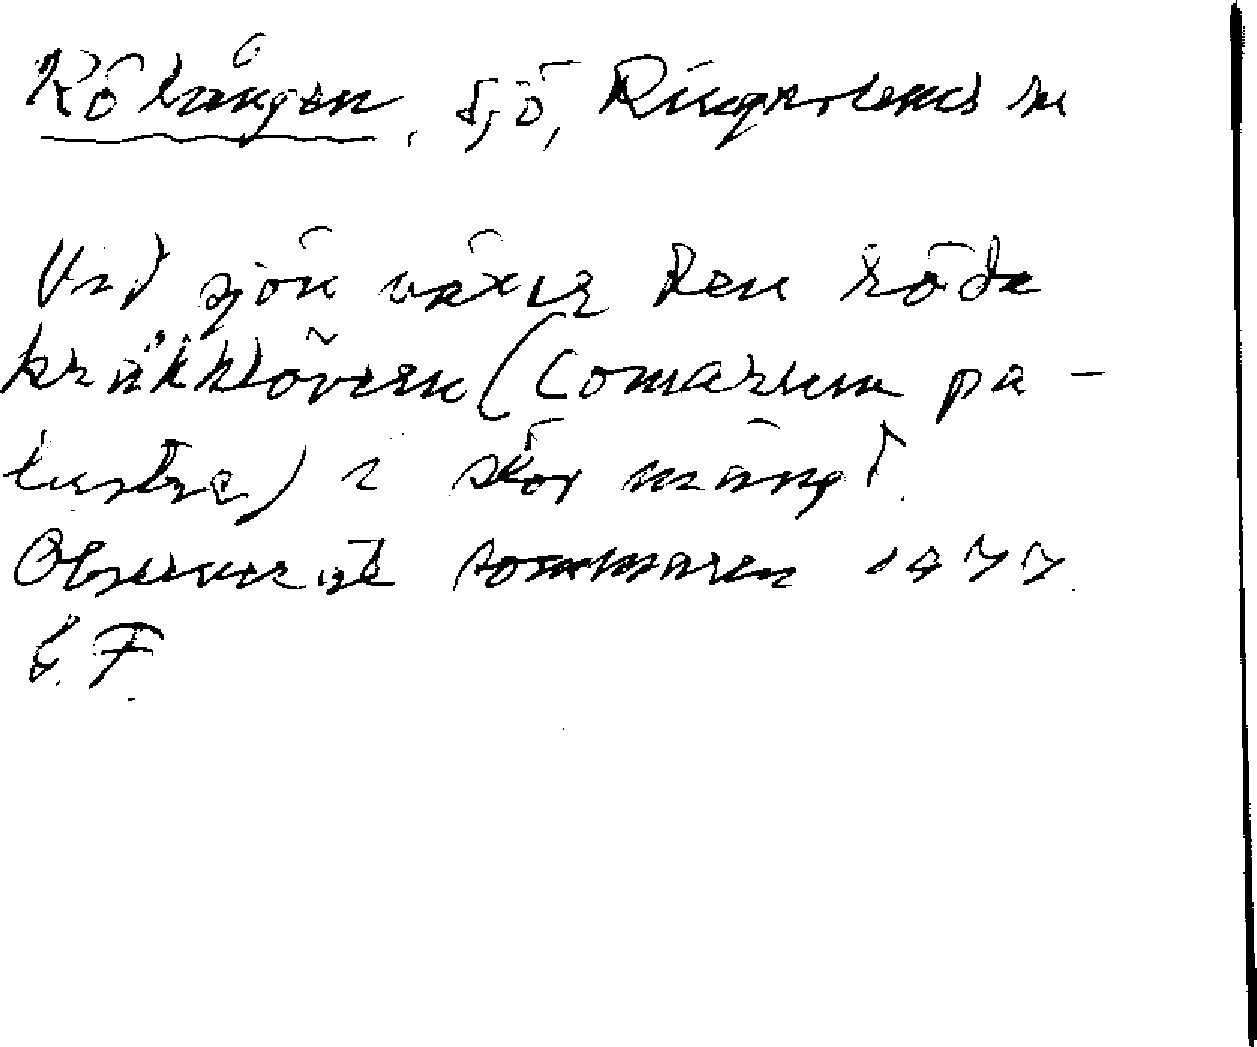 Rölången, sjö, Ringarums sn
Vid sjön växer den röda
kråkklövern (Comarum pa-
lustre) i stor mängd.
Observerat sommaren 1977.
S.F.